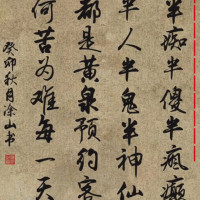 半痴半傻半疯癫
半人半鬼半神仙
都是黄泉预约客
何苦为难每一天
癸卯秋月涂山书